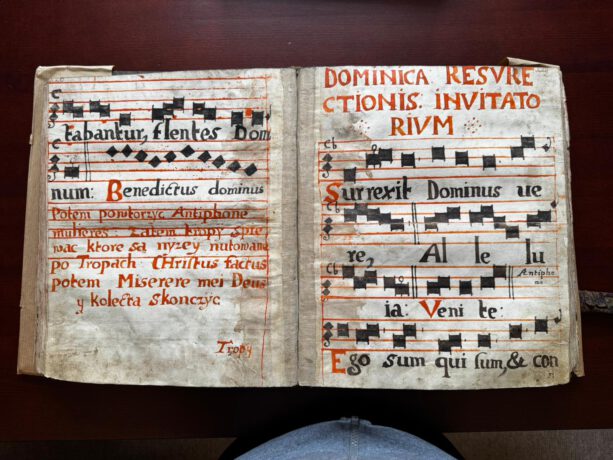 tabantur, flentes Dom
num: Benedictus dominus
Potem powtorzyc Antiphone
mulieres. Zatem tropy spie
wac ktore są nizey nutowane
po Tropach. CHristus factus
potem Miserere mei Deus
y kolecta skonczyc
Tropy
DOMINICA RESVRE
CTIONIS. INVITATO
RIVM
Surrexit Dominus ue
re, Al le lu
Antipho
na
ia: Veni te:
Ego sum qui sum, & con